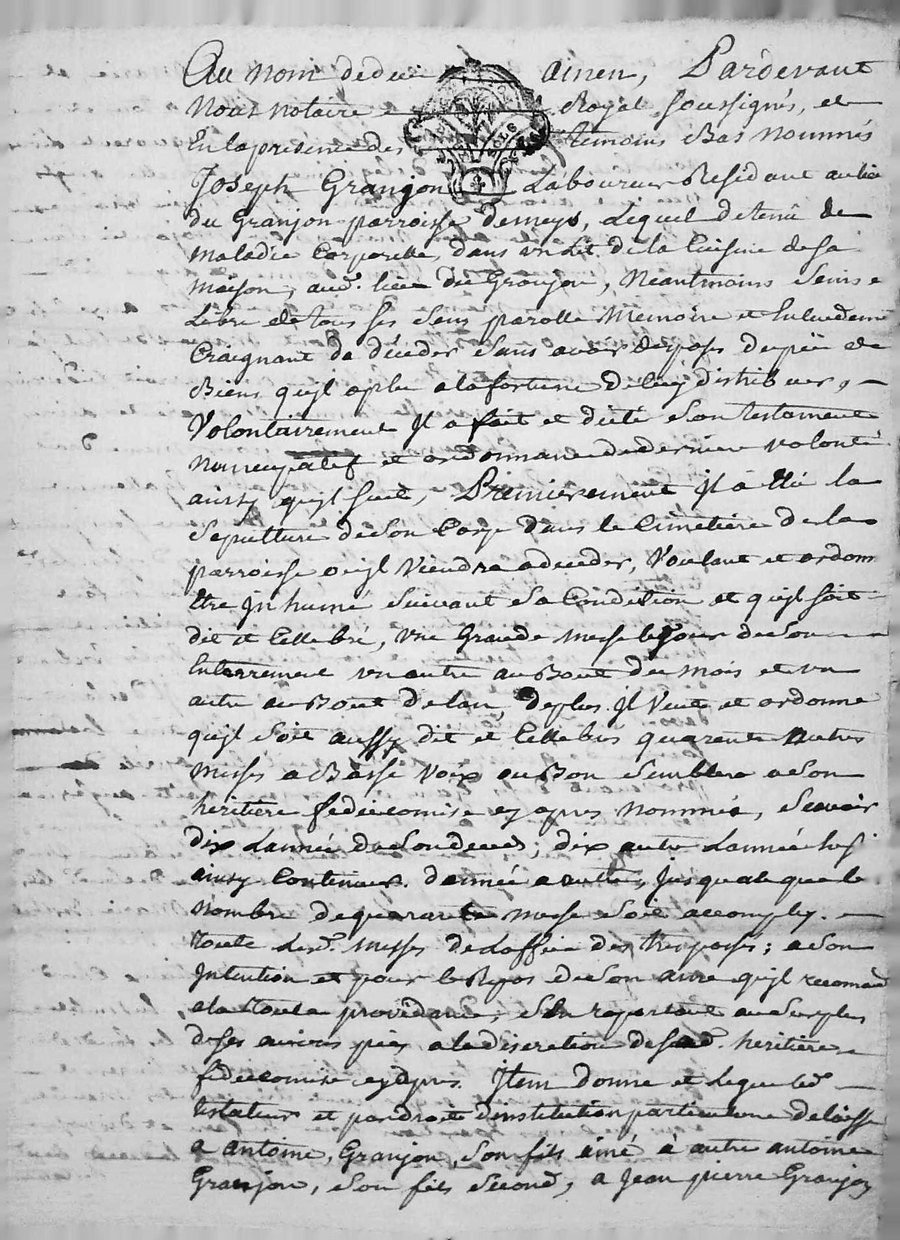 Au nom de dieu amen, Pardevant
Nous notaire Royal soussignés, et
En la presence des temoins Bas Nommés
Joseph Granjon Laboureur Residant au lieu
du Granjon parroisse demeys, Lequel detenû de
maladie Corporelle, dans un Lit de la Cuisine de sa
maison, aud. lieu du Granjon, Neantmoins Seins e
Libre de tous ses Sens parolle Memoire et
Craignant de déceder Sans avoir
Biens qu'jl a plu a la fortune de luy distribuer, –
Volontairement Jl a fait et dicté Son testament
Nuncupatif et ordonnance de derniere volonté
ainsy qu'jl suit, Premierement jl a élû la
Sepulture de Son Corps dans le Cimetière de la
parroisse ou jl Viendra a deceder, Voulant et ordonn
être Jnhumé Suivant Sa Condition et qu'jl soit
dit et Cellebré, une Grande messe le jour de Son
Enterrement un autre au Bout du mois et un
autre au Bout de lan, de plus jl Veut et ordonne
qu'jl Soit aussy dit et Cellebrés quarente Autres
messes a Basse Voix au Bon Semblere a Son
heritière fideicomise cy apres nommée, Scavoir
dix Lannée de Son deced; dix autre Lannée
ainsy Continuer dannée a autre, jusqua ce que le
Nombre de quarante messe Soit accomply. –
toute Lesd. messes de Loffice des trespassés; a Son
Jntention et pour le Repos de Son ame qu'jl recomand
a la toute providance, Sen raportant au Surplus
de ses œuvres pies a la discretion de sad. heritière
fideicomise cy apres. Jtem donne et Legue Led. –
testateur et par droit d'institution particuliere delaisse
a antoine, Granjon, Son fils ainé à autre antoine
Granjon, Son fils Second, a Jean pierre Granjon